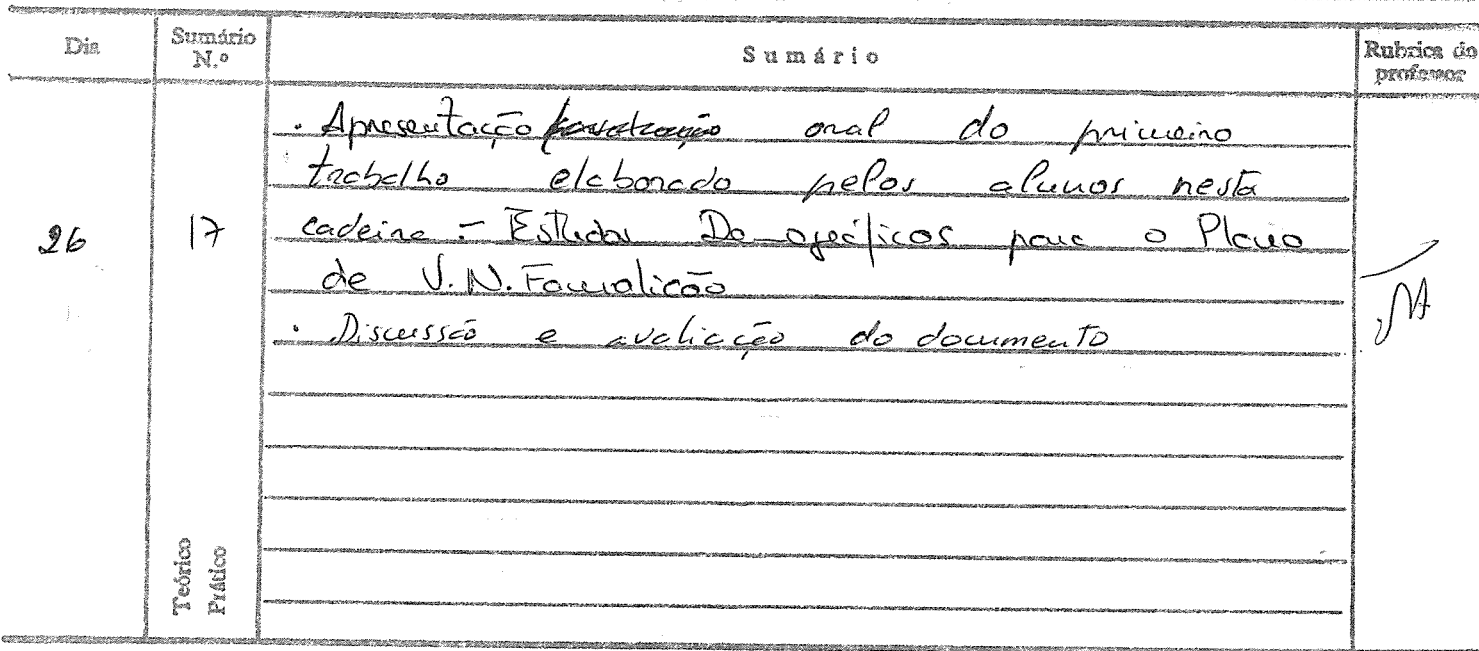 Dia Sumário N.º Sumário Rubrica do professor
. Apresentação oral do primeiro
trabalho elaborado pelos alunos nesta
26 17 cadeira - Estudos para o Plano
de V. N. Famalicão
. Discussão e avaliação do documento
Teórico
Prático